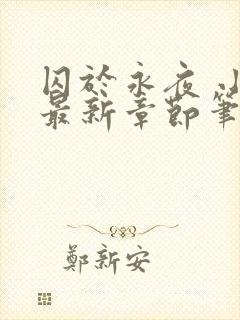 囚於永夜
最新章節筆
鄭新安